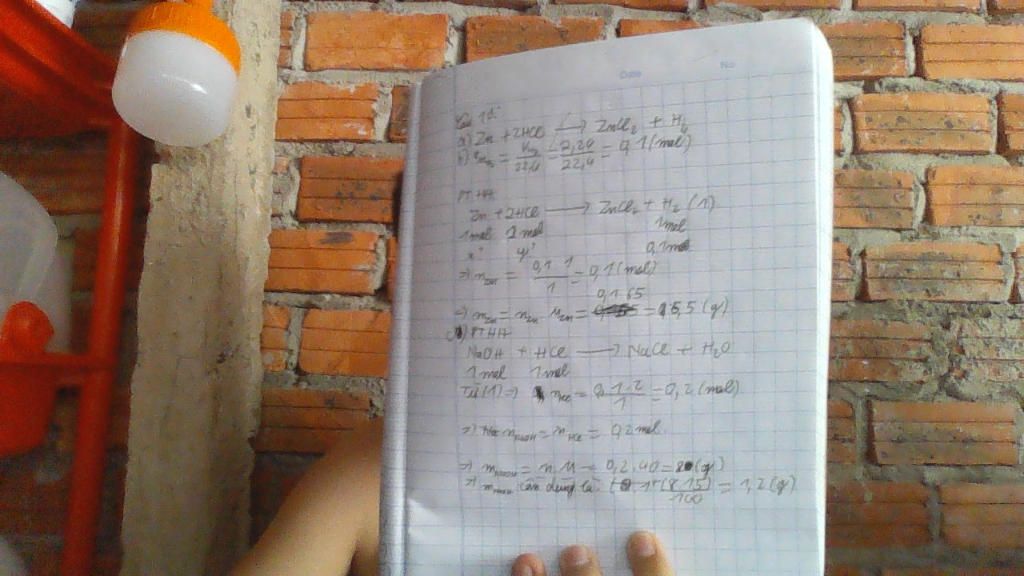 Date No
a) Zn + 2HCl → ZnCl₂ + H₂
= 2,24 / 22,4 = 0,1 (mol)
PTHH
Zn + 2HCl → ZnCl₂ + H₂ (1)
1mol 2mol 1mol
x y 0,1mol
=> nZn = 0,1.1 / 1 = 0,1 (mol)
=> mZn = nZn . MZn = 0,1.65 = 6,5 (g)
c) PTHH
NaOH + HCl → NaCl + H₂O
1mol 1mol
Từ (1) => nHCl = 0,1.2 / 1 = 0,2 (mol)
=> nNaOH = nHCl = 0,2 mol
=> mNaOH = n.M = 0,2.40 = 8 (g)
cần dùng là: (8.15) / 100 = 1,2 (g)